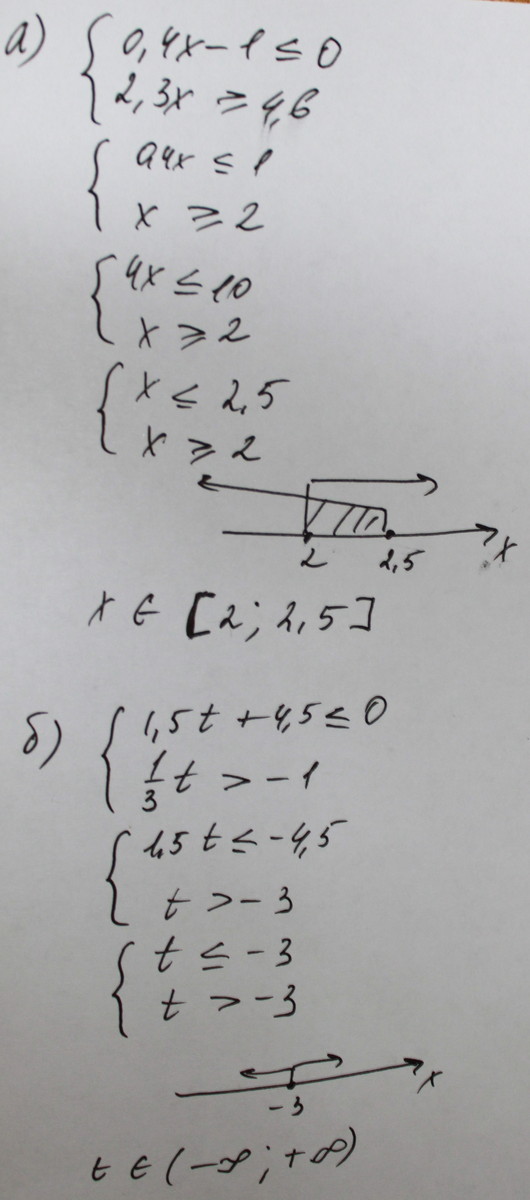 а) { 0,4x - 1 ≤ 0
2,3x ≥ 4,6
{ 0,4x ≤ 1
x ≥ 2
{ 4x ≤ 10
x ≥ 2
{ x ≤ 2,5
x ≥ 2
2 2,5 x
x ∈ [2; 2,5]
б) { 1,5t + 4,5 ≤ 0
1/3 t > -1
{ 1,5t ≤ -4,5
t > -3
{ t ≤ -3
t > -3
-3 x
t ∈ (-∞; +∞)